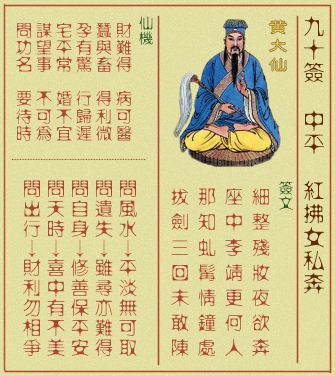 九十簽 中平 紅拂女私奔
黃大仙
簽文
細整殘妝夜欲奔
座中李靖更何人
那知虬髯情鐘處
拔劍三回未敢陳
仙機
財難得 病可醫
蠶與畜 得利微
孕有驚 行歸遲
宅平常 婚不宜
謀望事 不可為
問功名 要待時
問風水→平淡無可取
問遺失→雖尋亦難得
問自身→修善保平安
問天時→喜中有不美
問出行→財利勿相爭